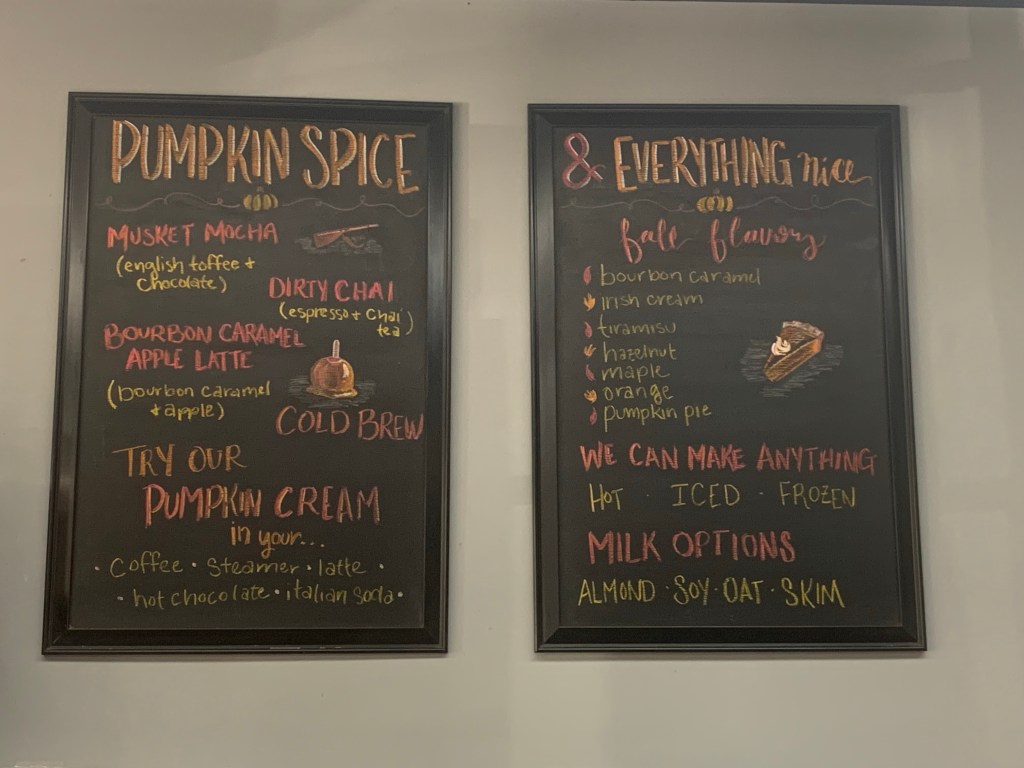 PUMPKIN SPICE
MUSKET MOCHA
(english toffee +
chocolate)
DIRTY CHAI
(espresso + chai
tea)
BOURBON CARAMEL
APPLE LATTE
(bourbon caramel
+ apple)
COLD BREW
TRY OUR
PUMPKIN CREAM
in your...
· Coffee · Steamer · latte ·
· hot chocolate · italian soda ·
& EVERYTHING nice
fall flavors
bourbon caramel
irish cream
tiramisu
hazelnut
maple
orange
pumpkin pie
WE CAN MAKE ANYTHING
HOT · ICED · FROZEN
MILK OPTIONS
ALMOND · SOY · OAT · SKIM